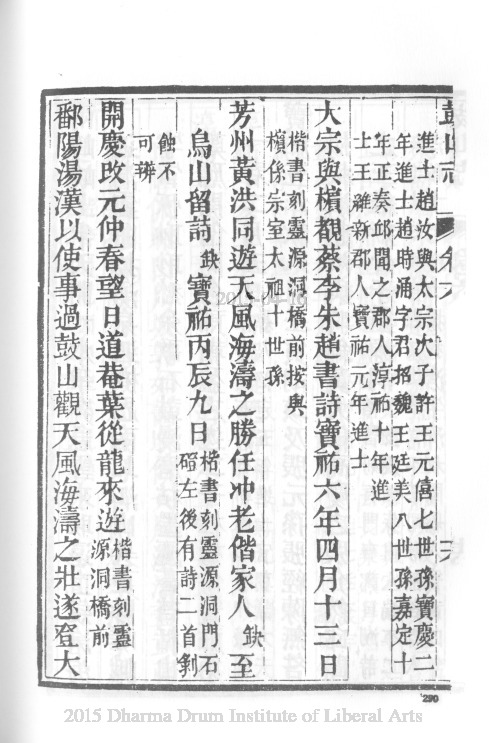 鼓山志 卷六
進士趙汝與太宗次子許王元僖七世孫寶慶二
年進士趙時涌字君招魏王廷美八世孫嘉定十
年正奏邱聞之郡人淳祐十年進
士王 新郡人寶祐元年進士
大宗與檳觀蔡李朱趙書詩寶祐六年四月十三日
楷書刻靈源洞橋前按與
檳係宗室太祖十世孫
芳州黃洪同遊天風海濤之勝任冲老偕家人缺至
烏山留詩缺寶祐丙辰九日楷書刻靈源洞門石
磴左後有詩二首剝
蝕不
可辨
開慶改元仲春望日道菴葉從龍來遊楷書刻靈
源洞橋前
鄱陽湯漢以使事過鼓山觀天風海濤之壯遂登大
290
2015 Dharma Drum Institute of Liberal Arts